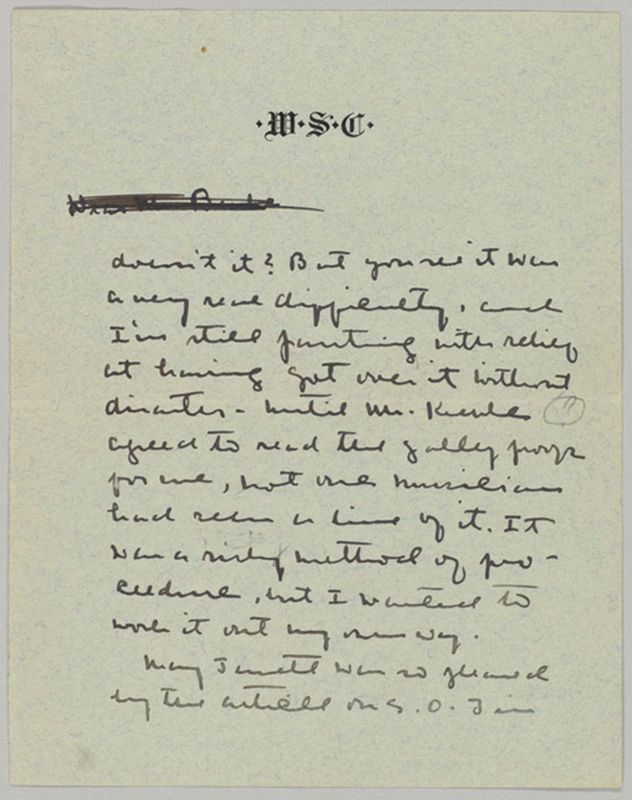 ·W·S·C·
doesn't it? But you see it was
a very real difficulty, and
I'm still panting with relief
at having got over it without
disaster - until Mr.
agreed to read the galley proofs
for me, not one musician
had seen a line of it. It
was a risky method of pro-
cedure, but I wanted to
work it out my own way.
Mary was so pleased
by the article on S. O. I am